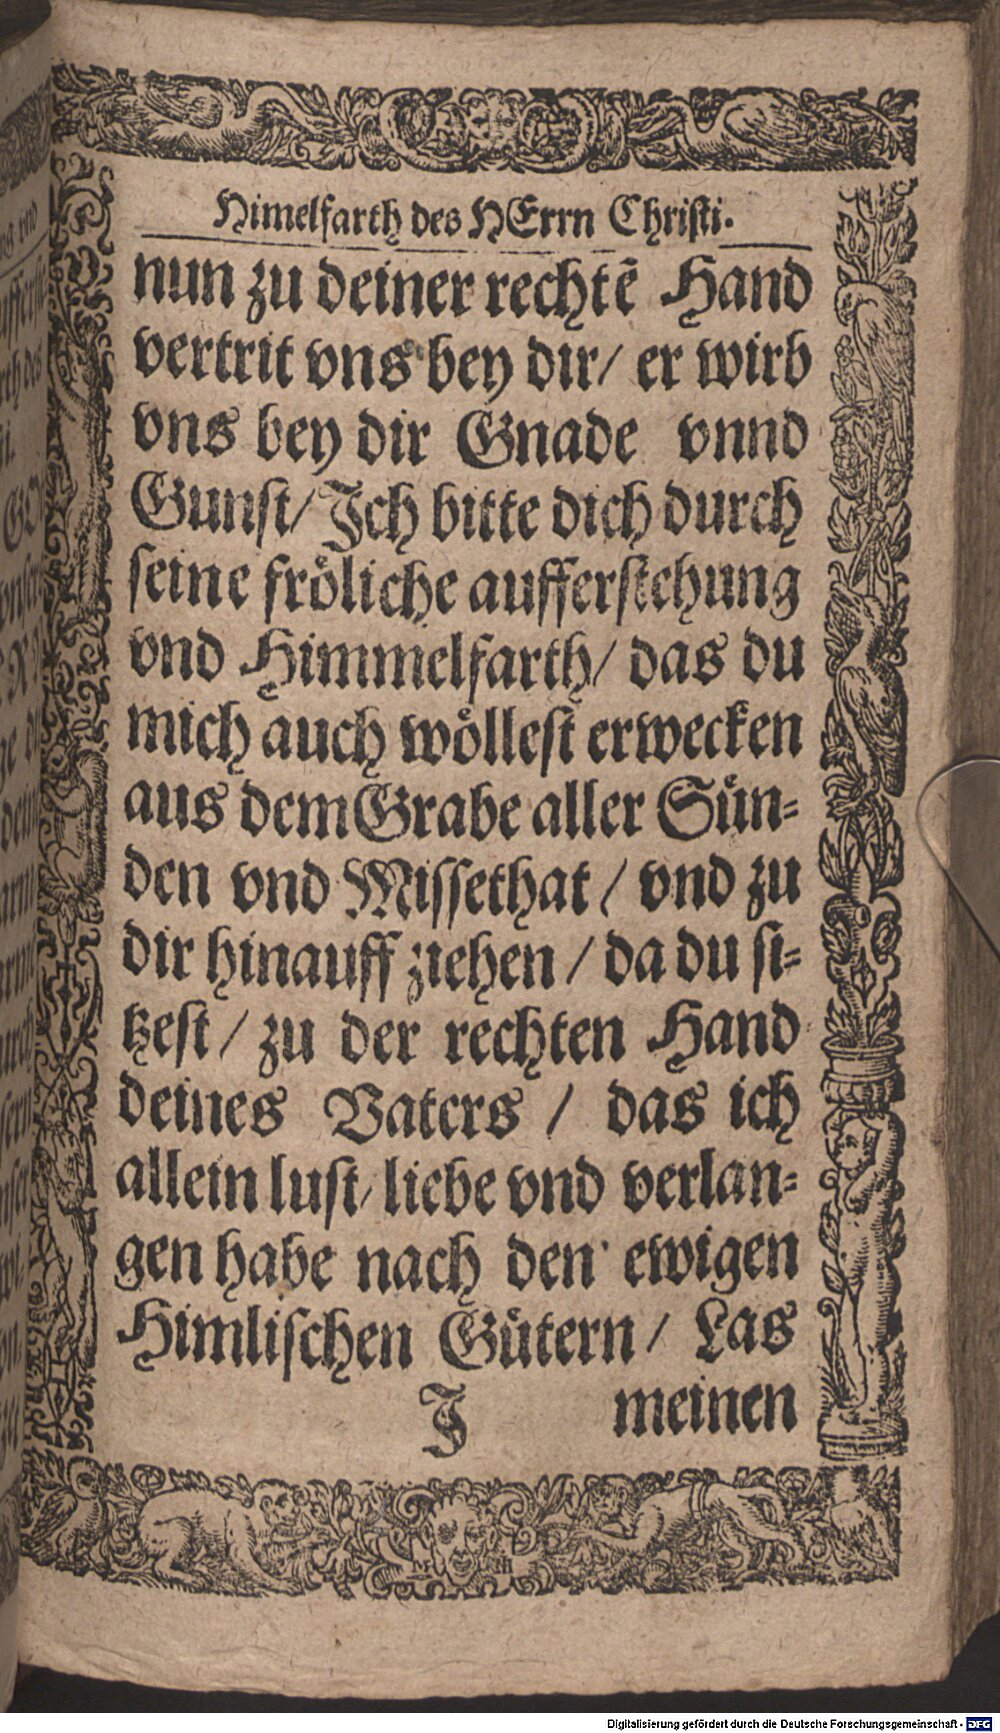 Himelfarth des HErrn Christi.
nun zu deiner rechtẽ Hand
vertrit vns bey dir/ er wirb
vns bey dir Gnade vnnd
Gunst/ Ich bitte dich durch
seine froͤliche aufferstehung
vnd Himmelfarth/ das du
mich auch woͤllest erwecken
aus dem Grabe aller Suͤn-
den vnd Missethat / vnd zu
dir hinauff ziehen / da du si-
tzest / zu der rechten Hand
deines Vaters / das ich
allein lust/ liebe vnd verlan-
gen habe nach den ewigen
Himlischen Guͤtern / Las
J meinen
Digitalisierung gefördert durch die Deutsche Forschungsgemeinschaft - DFG